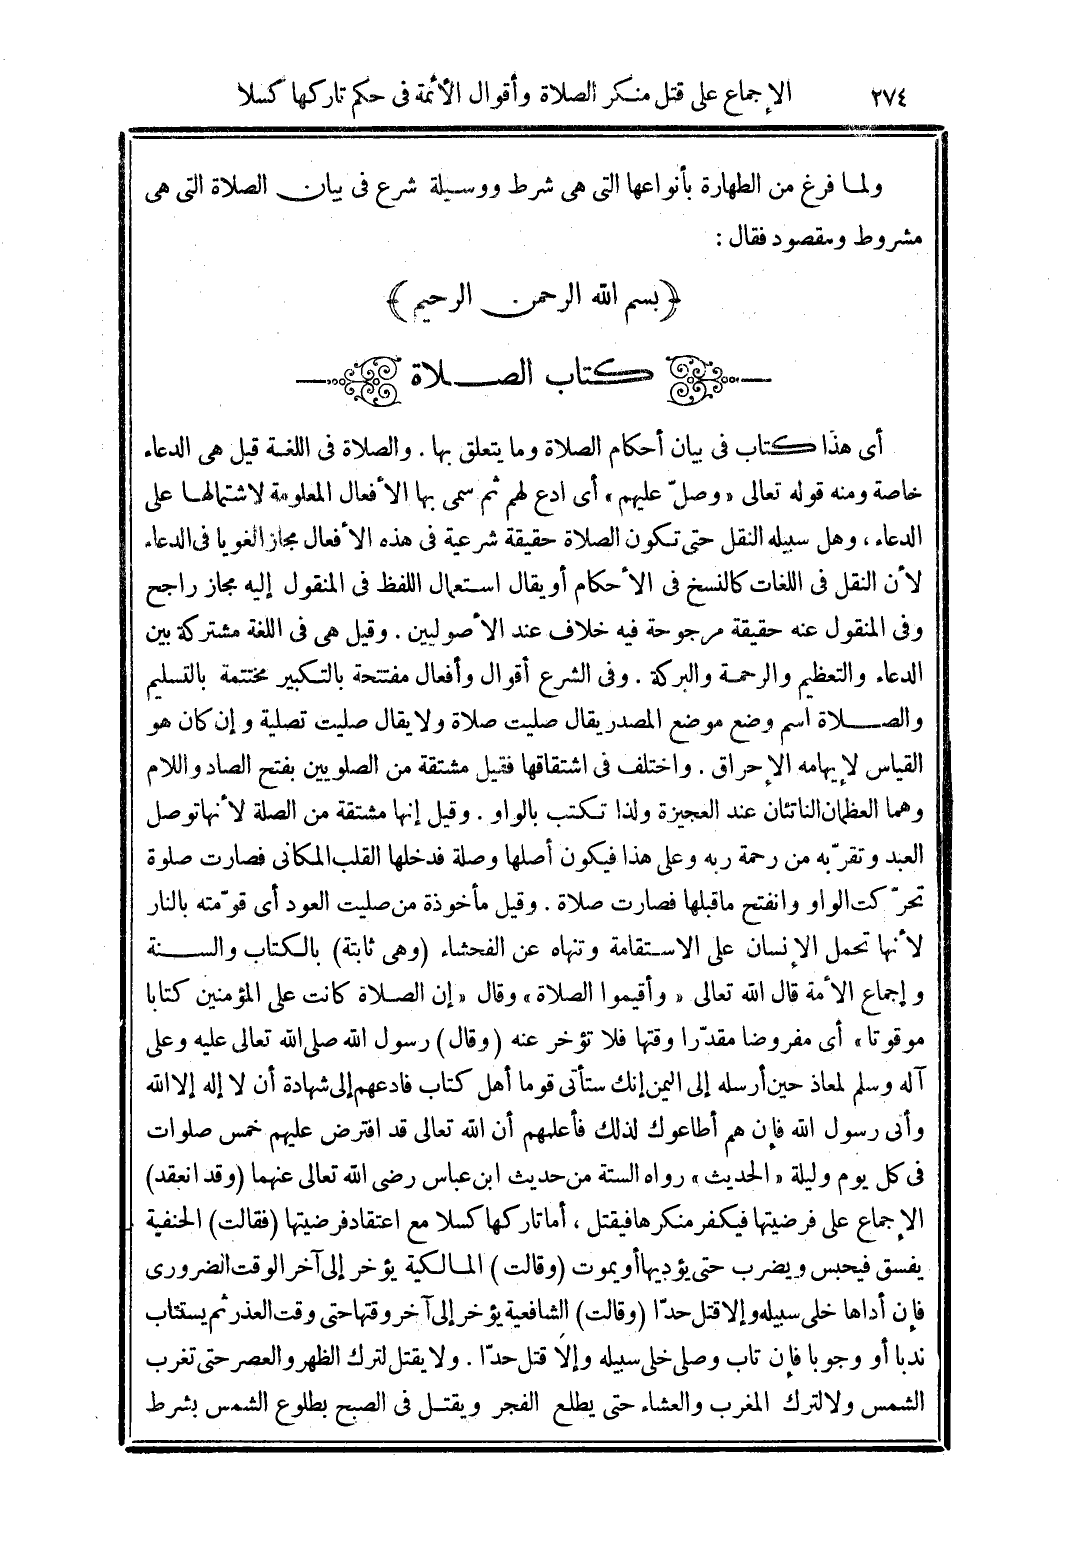 ٢٧٤ الإجماع على قتل منكر الصلاة وأقوال الأئمة فى حكم تاركها كسلا
ولما فرغ من الطهارة بأنواعها التى هى شرط ووسيلة شرع فى بيان الصلاة التى هى
مشروط ومقصود فقال :
﴿بسم الله الرحمن الرحيم﴾
كتاب الصلاة
أى هذا كتاب فى بيان أحكام الصلاة وما يتعلق بها . والصلاة فى اللغة قيل هى الدعاء
خاصة ومنه قوله تعالى «وصلّ عليهم» أى ادع لهم ثم سمى بها الأفعال المعلومة لاشتمالها على
الدعاء ، وهل سبيله النقل حتى تكون الصلاة حقيقة شرعية فى هذه الأفعال مجازا لغويا فى الدعاء
لأن النقل فى اللغات كالنسخ فى الأحكام أو يقال استعمال اللفظ فى المنقول إليه مجاز راجح
وفى المنقول عنه حقيقة مرجوحة فيه خلاف عند الأصوليين . وقيل هى فى اللغة مشتركة بين
الدعاء والتعظيم والرحمة والبركة . وفى الشرع أقوال وأفعال مفتتحة بالتكبير مختتمة بالتسليم
والصلاة اسم وضع موضع المصدر يقال صليت صلاة ولا يقال صليت تصلية وإن كان هو
القياس لإيهامه الإحراق . واختلف فى اشتقاقها فقيل مشتقة من الصلويين بفتح الصاد واللام
وهما العظمان الناتئان عند العجيزة ولذا تكتب بالواو . وقيل إنها مشتقة من الصلة لأنها توصل
العبد وتقرّبه من رحمة ربه وعلى هذا فيكون أصلها وصلة فدخلها القلب المكانى فصارت صلوة
تحرّكت الواو وانفتح ماقبلها فصارت صلاة . وقيل مأخوذة من صليت العود أى قوّمته بالنار
لأنها تحمل الإنسان على الاستقامة وتنهاه عن الفحشاء (وهى ثابتة) بالكتاب والسنة
وإجماع الأمة قال الله تعالى «وأقيموا الصلاة» وقال «إن الصلاة كانت على المؤمنين كتابا
موقوتا» أى مفروضا مقدّرا وقتها فلا تؤخر عنه (وقال) رسول الله صلى الله تعالى عليه وعلى
آله وسلم لمعاذ حين أرسله إلى اليمن إنك ستأتى قوما أهل كتاب فادعهم إلى شهادة أن لا إله إلا الله
وأنى رسول الله فإن هم أطاعوك لذلك فأعلمهم أن الله تعالى قد افترض عليهم خمس صلوات
فى كل يوم وليلة «الحديث» رواه الستة من حديث ابن عباس رضى الله تعالى عنهما (وقد انعقد)
الإجماع على فرضيتها فيكفر منكرها فيقتل ، أما تاركها كسلا مع اعتقاد فرضيتها (فقالت) الحنفية
يفسق فيحبس ويضرب حتى يؤديها أو يموت (وقالت) المالكية يؤخر إلى آخر الوقت الضرورى
فإن أداها خلى سبيله وإلا قتل حدّا (وقالت) الشافعية يؤخر إلى آخر وقتها حتى وقت العذر ثم يستتاب
ندبا أو وجوبا فإن تاب وصلى خلى سبيله وإلا قتل حدّا . ولا يقتل لترك الظهر والعصر حتى تغرب
الشمس ولا لترك المغرب والعشاء حتى يطلع الفجر ويقتل فى الصبح بطلوع الشمس بشرط